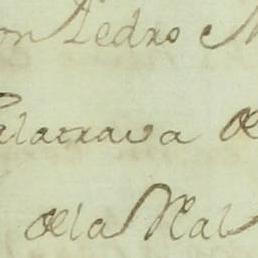 on Pedro M
alatrava de
dela Real